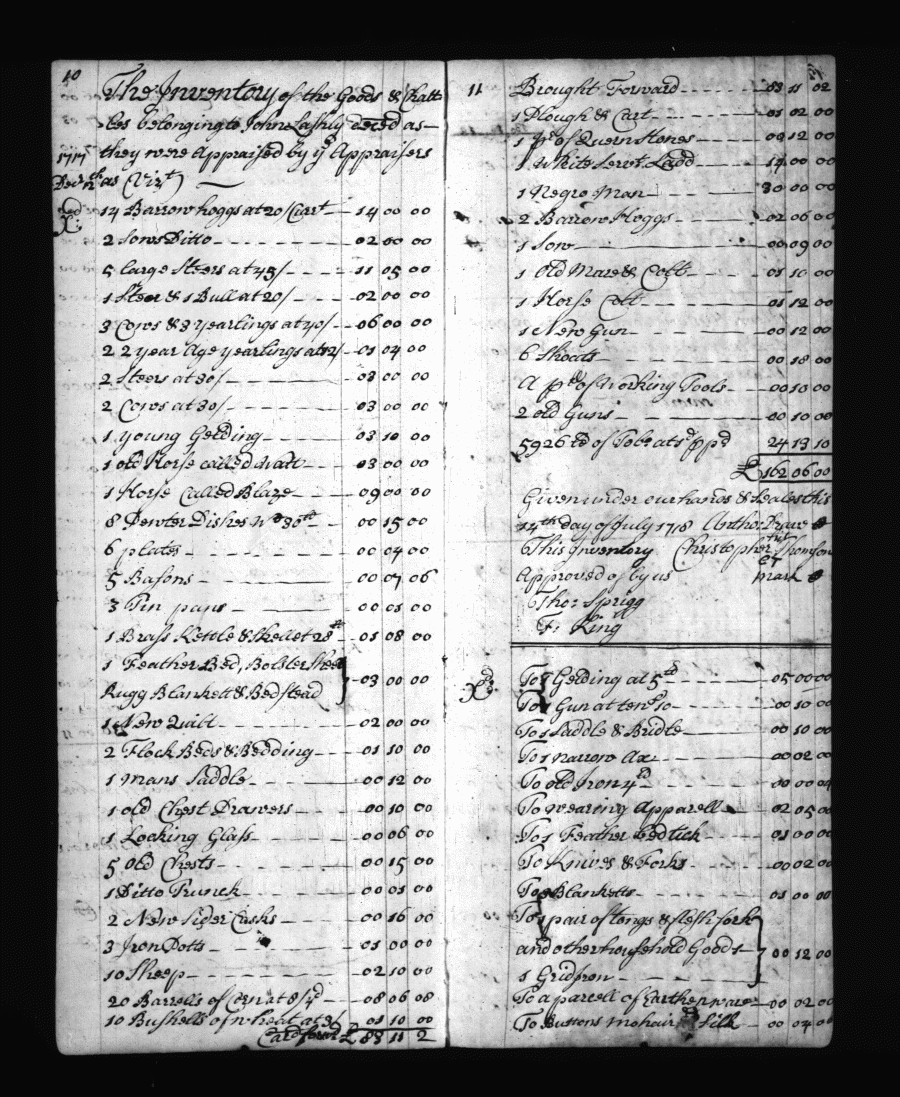 10
The Inventory of the Goods & Chatt
-les belonging to John Lashly deced as
1717 they were Appraised by ye Appraisers
as (Vizt)
14 Barrow hoggs at 20/ 14 00 00
2 Sows Ditto 02 00 00
5 large Steers at 45/ 11 05 00
1 Steer & 1 Bull at 20/ 02 00 00
3 Cows & 3 yearlings at 40/ 06 00 00
2 2 year Age yearlings at 12/ 01 04 00
2 Steers at 30/ 03 00 00
2 Cows at 30/ 03 00 00
1 young Gelding 03 10 00
1 old Horse called Watt 03 00 00
1 Horse Called Blaze 09 00 00
8 Pewter Dishes wt 30tt 00 15 00
6 plates 00 04 00
5 Basons 00 07 06
3 Tin pans 00 01 00
1 Brass Kettle & Skellet 28tt 01 08 00
1 Feather Bed, Bolster Sheet
Rugg Blankett & Bedstead 03 00 00
1 New Quilt 02 00 00
2 Flock Beds & Bedding 01 10 00
1 mans Saddle 00 12 00
1 old Chest Drawers 00 10 00
1 Looking Glass 00 06 00
5 old Chests 00 15 00
1 Ditto Trunck 00 01 00
2 New Sider Casks 00 16 00
3 Iron Potts 01 00 00
10 Sheep 02 10 00
20 Barrells of Corn at 8/4d 08 06 08
10 Bushells of wheat at 3/ 01 10 00
Card forwd £ 83 11 2
11 Brought Forward 83 11 02
1 Plough & Cart 01 02 00
1 pr of Quern Stones 00 12 00
1 White Servt Ladd 14 00 00
1 Negro Man 30 00 00
2 Barrow Hoggs 02 06 00
1 Sow 00 09 00
1 Old Mare & Colt 01 10 00
1 Horse Colt 01 12 00
1 New Gun 00 12 00
6 Shoats 00 18 00
A pcll of Working Tools 00 10 00
2 old Guns 00 10 00
5926 td of Tobo at 1d ppd 24 13 10
£ 162 06 00
Given under our hands & Seales this
14th day of July 1718 Antho:
This Inventory Christopher Thomson
Approved of by us mark
Tho: Sprigg
F: King
To 1 Gelding at 5td 05 00 00
To 1 Gun at tens 10 00 10 00
To 1 Saddle & Bridle 00 10 00
To 1 narrow Ax 00 02 00
To old Iron 4d 00 00 04
To wearing Apparell 02 05 00
To 1 Feather bed tick 01 00 00
To Knives & Forks 00 02 00
To 3 Blanketts 01 00 00
To 1 pair of tongs & flesh fork
and other household Goods 00 12 00
1 Gridiron
To a parcell of Earthenware 00 02 00
To Buttons mohair & Silk 00 04 00